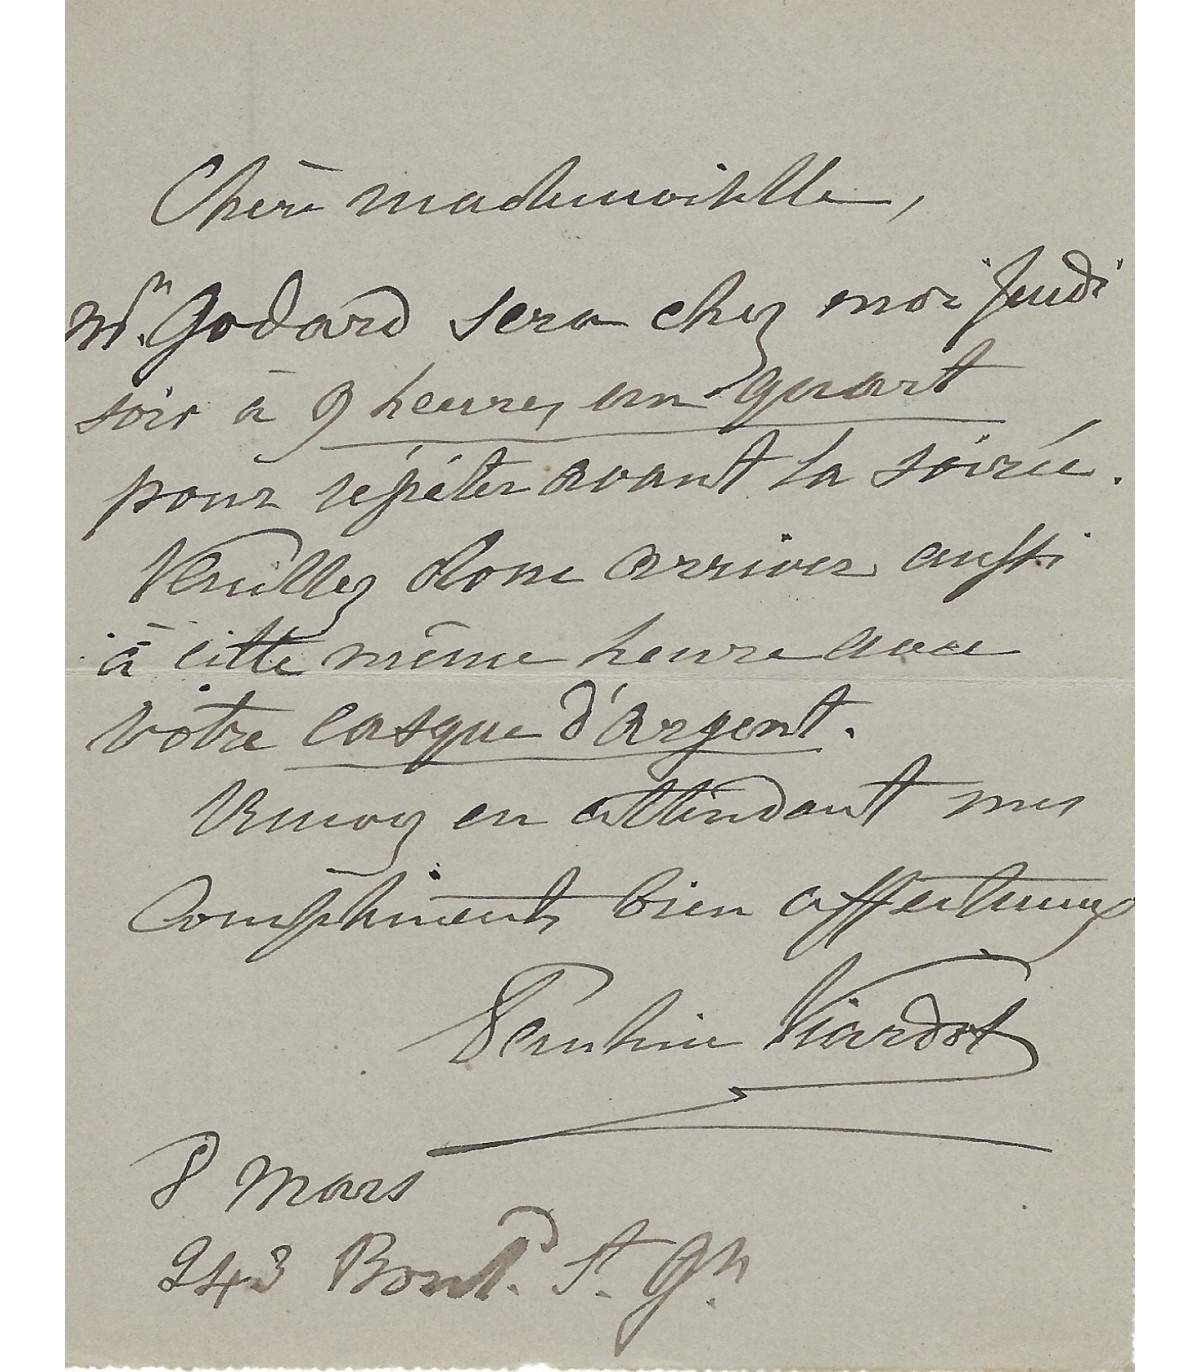 Chère mademoiselle,
Mr. Godard sera chez moi jeudi
soir à 9 heures un quart
pour répéter avant la soirée.
Veuillez donc arriver aussi
à cette même heure avec
votre casque d'argent.
en attendant mes
compliments bien affectueux
Pauline Viardot
8 mars
243 Boul^d. St. Gn.